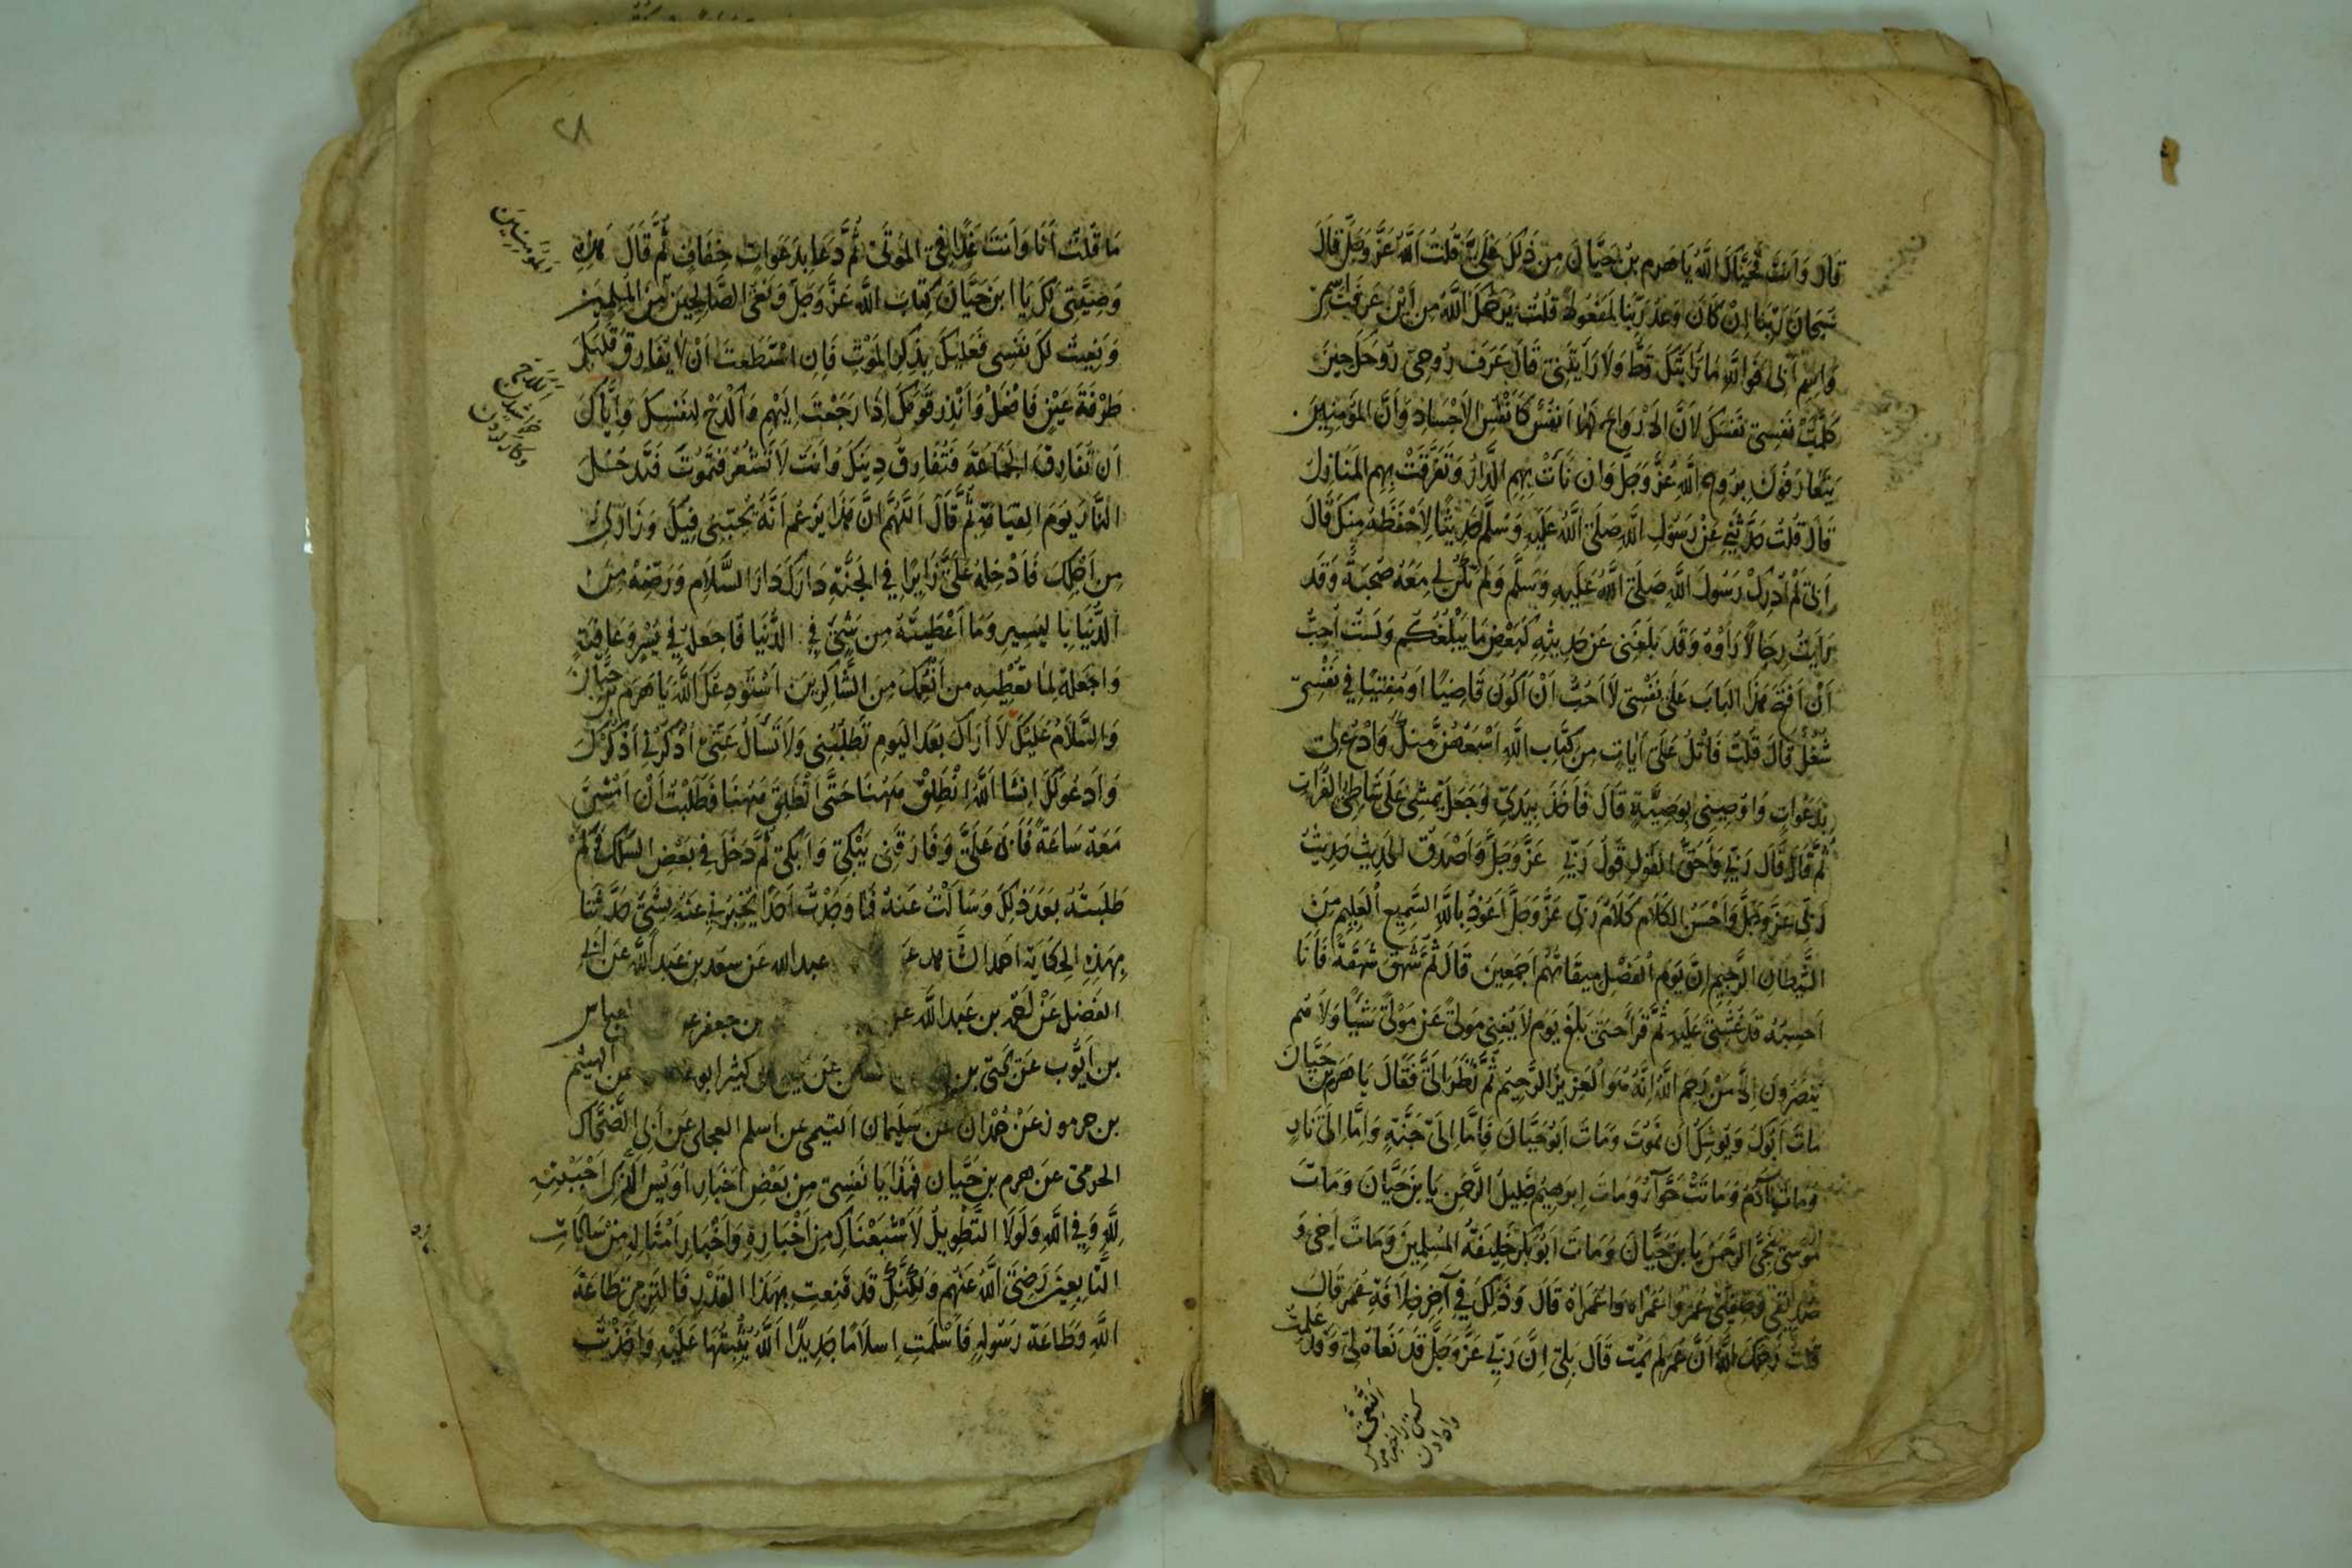 قَالَ وَاَنْتَ فَحَيَّاكَ اللَّهُ يَا هَرِم بْنَ حَيَّانَ مَنْ دَلَّكَ عَلَيَّ قُلْتُ اللَّهُ عَزَّ وَجَلَّ قَالَ
سُبْحَانَ رَبِّنَا اِنْ كَانَ وَعْدُ رَبِّنَا لَمَفْعُولًا قُلْتُ يَرْحَمُكَ اللَّهُ مِنْ اَيْنَ عَرَفْتَ اسْمِي
وَاسْمَ اَبِي فَوَاللَّهِ مَا رَاَيْتُكَ قَطُّ وَلَا رَاَيْتَنِي قَالَ عَرَفَ رُوحِي رُوحَكَ حِينَ
كَلَّمَتْ نَفْسِي نَفْسَكَ لِاَنَّ الْاَرْوَاحَ لَهَا اَنْفُسٌ كَاَنْفُسِ الْاَجْسَادِ وَاَنَّ الْمُؤْمِنِينَ
يَتَعَارَفُونَ بِرُوحِ اللَّهِ عَزَّ وَجَلَّ وَاِنْ نَأَتْ بِهِم الدَّارُ وَتَفَرَّقَتْ بِهِم الْمَنَازِلُ
قَالَ قُلْتُ حَدِّثْنِي عَنْ رَسُولِ اللَّهِ صَلَّى اللَّهُ عَلَيْهِ وَسَلَّمَ حَدِيثًا لِاَحْفَظَهُ مِنْكَ قَالَ
اِنِّي لَمْ اُدْرِكْ رَسُولَ اللَّهِ صَلَّى اللَّهُ عَلَيْهِ وَسَلَّمَ وَلَمْ تَكُنْ لِي مَعَهُ صُحْبَةٌ وَقَدْ
رَاَيْتُ رِجَالًا رَاَوْهُ وَقَدْ بَلَغَنِي عَنْ حَدِيثِهِ كَبَعْضِ مَا يَبْلُغُكُمْ وَلَسْتُ اُحِبُّ
اَنْ اَفْتَحَ هَذَا الْبَابَ عَلَى نَفْسِي لَا اُحِبُّ اَنْ اَكُونَ قَاضِيًا اَوْ مُفْتِيًا فِي نَفْسِي
شُغْلٌ قَالَ قُلْتُ فَاتْلُ عَلَيَّ اٰيَاتٍ مِنْ كِتَابِ اللَّهِ اَسْمَعْهُنَّ مِنْكَ وَادْعُ لِي
بِدَعَوَاتٍ وَاَوْصِينِي بِوَصِيَّةٍ قَالَ فَاَخَذَ بِيَدِي وَجَعَلَ يَمْشِي عَلَى شَاطِئِ الْفُرَاتِ
ثُمَّ قَالَ قَالَ رَبِّي وَاَحَقُّ الْقَوْلِ قَوْلُ رَبِّي عَزَّ وَجَلَّ وَاَصْدَقُ الْحَدِيثِ حَدِيثُ
رَبِّي عَزَّ وَجَلَّ وَاَحْسَنُ الْكَلَامِ كَلَامُ رَبِّي عَزَّ وَجَلَّ اَعُوذُ بِاللَّهِ السَّمِيعِ الْعَلِيمِ مِنَ
الشَّيْطَانِ الرَّجِيمِ اِنَّ يَوْمَ الْفَصْلِ مِيقَاتُهُمْ اَجْمَعِينَ قَالَ ثُمَّ شَهَقَ شَهْقَةً فَاَنَا
اَحْسِبُهُ قَدْ غُشِيَ عَلَيْهِ ثُمَّ قَرَاَ حَتَّى بَلَغَ يَوْمَ لَا يُغْنِي مَوْلًى عَنْ مَوْلًى شَيْئًا وَلَا هُمْ
يُنْصَرُونَ اِلَّا مَنْ رَحِمَ اللَّهُ اِنَّهُ هُوَ الْعَزِيزُ الرَّحِيمُ ثُمَّ نَظَرَ اِلَيَّ فَقَالَ يَا هَرِم بْنَ حَيَّانَ
مَاتَ اَبُوكَ وَيُوشِكُ اَنْ تَمُوتَ وَمَاتَ اَبُو حَيَّانَ فَاِمَّا اِلَى جَنَّةٍ وَاِمَّا اِلَى نَارٍ
وَمَاتَ اٰدَمُ وَمَاتَتْ حَوَّآءُ وَمَاتَ اِبْرَهِيمُ خَلِيلُ الرَّحْمٰنِ يَا بْنَ حَيَّانَ وَمَاتَ
مُوسَى نَجِيُّ الرَّحْمَنِ يَا بْنَ حَيَّانَ وَمَاتَ اَبُو بَكْرٍ خَلِيفَةُ الْمُسْلِمِينَ وَمَاتَ اَخِي وَ
صَدِيقِي وَصَفِيِّي عُمَرُ وَاعُمَرَاهُ وَاعُمَرَاهُ قَالَ وَذٰلِكَ فِي آخِرِ خِلَافَةِ عُمَرَ قَالَ
قُلْتُ رَحِمَكَ اللَّهُ اَنَّ عُمَرَ لَمْ يَمُتْ قَالَ بَلَى اِنَّ رَبِّي عَزَّ وَجَلَّ قَدْ نَعَاهُ لِي وَقَدْ عَلِمْتُ
٢٨
مَا قُلْتُ اَنَا وَاَنْتَ غَدًا فِي الْمَوْتَى ثُمَّ دَعَا بِدَعَوَاتٍ خِفَافٍ ثُمَّ قَالَ هَذِهِ
وَصِيَّتِي لَكَ يَا ابْنَ حَيَّانَ كِتَابَ اللَّهِ عَزَّ وَجَلَّ وَنَعْيَ الصَّالِحِينَ مِنَ الْمُسْلِمِينَ
وَنَعَيْتُ لَكَ نَفْسِي فَعَلَيْكَ بِذِكْرِ الْمَوْتِ فَاِنِ اسْتَطَعْتَ اَنْ لَا يُفَارِقَ قَلْبَكَ
طَرْفَةَ عَيْنٍ فَافْعَلْ وَاَنْذِرْ قَوْمَكَ اِذَا رَجَعْتَ اِلَيْهِمْ وَاكْدَحْ لِنَفْسِكَ وَاِيَّاكَ
اَنْ تُفَارِقَ الْجَمَاعَةَ فَتُفَارِقَ دِينَكَ وَاَنْتَ لَا تَشْعُرُ فَتَمُوتَ فَتَدْخُلَ
النَّارَ يَوْمَ الْقِيَامَةِ ثُمَّ قَالَ اَللَّهُمَّ اِنَّ هَذَا يَزْعُمُ اَنَّهُ يُحِبُّنِي فِيكَ وَزَارَنِي
مِنْ اَجْلِكَ فَاَدْخِلْهُ عَلَيَّ زَائِرًا فِي الْجَنَّةِ دَارَكَ دَارَ السَّلَامِ وَرَضِّهِ مِنَ
الدُّنْيَا بِالْيَسِيرِ وَمَا اَعْطَيْتَهُ مِنْ شَيْءٍ فِي الدُّنْيَا فَاجْعَلْهُ فِي يُسْرٍ وَعَافِيَةٍ
وَاجْعَلْهُ لِمَا تُعْطِيهِ مِنْ اَنْعُمِكَ مِنَ الشَّاكِرِينَ اَسْتَوْدِعُكَ اللَّهَ يَا هَرِمَ بْنَ حَيَّانَ
وَالسَّلَامُ عَلَيْكَ لَا اَرَاكَ بَعْدَ الْيَوْمِ تَطْلُبُنِي وَلَا تَسْاَلْ عَنِّي اُذْكُرْنِي اَذْكُرْكَ
وَاَدْعُو لَكَ اِنْشَا اللَّهُ اِنْطَلِقْ هٰهُنَا حَتَّى اَنْطَلِقَ هٰهُنَا فَطَلَبْتُ اَنْ اَمْشِيَ
مَعَهُ سَاعَةً فَاَبَى عَلَيَّ وَفَارَقَنِي يَبْكِي وَاَبْكِي ثُمَّ دَخَلَ فِي بَعْضِ السِّكَكِ فَكَمْ
طَلَبْتُهُ بَعْدَ ذٰلِكَ وَسَاَلْتُ عَنْهُ فَمَا وَجَدْتُ اَحَدًا يُخْبِرُنِي عَنْهُ بِشَيْءٍ حَدَّثَنَا
بِهَذِهِ الْحِكَايَةِ اَحْمَدُ عبدالله عَنْ سعد بن عَبْدِ اللَّهِ عَنْ
الفَضْلِ عَنْ بن عَبْدِ اللَّهِ بن جعفر العباس
بن اَيُّوب عَنْ يحيى بن عَنْ كثير ابو عن الهيثم
بن جرموز عَنْ حُمْدَانَ عَنْ سُلَيمان التيمى عن اسلم العجلى عَنْ اَبِي الضَّحَّاك
الجرمى عَنْ هرم بن حَيَّان فَهَذَا يَا نَفْسِي مِنْ بَعْضِ اَخْبَارِ اُوَيْسِ الَّذِي اَحْبَبْتِهِ
لِلّٰهِ وَفِي اللَّهِ وَلَوْلَا التَّطْوِيلُ لَاَشْبَعْنَاكِ مِنْ اَخْبَارِهِ وَاَخْبَارِ اَمْثَالِهِ مِنْ سَادَاتِ
التَّابِعِينَ رَضِيَ اللَّهُ عَنْهُمْ وَلَكِنَّكِ قَدْ قَنِعْتِ بِهَذَا الْقَدْرِ فَالْتَزِمِي طَاعَةَ
اللَّهِ وَطَاعَةَ رَسُولِهِ فَاَسْلَمَتْ اِسْلَامًا جَدِيدًا اَللَّهُ يُثَبِّتُهَا عَلَيْهِ وَاَخَذْتُ